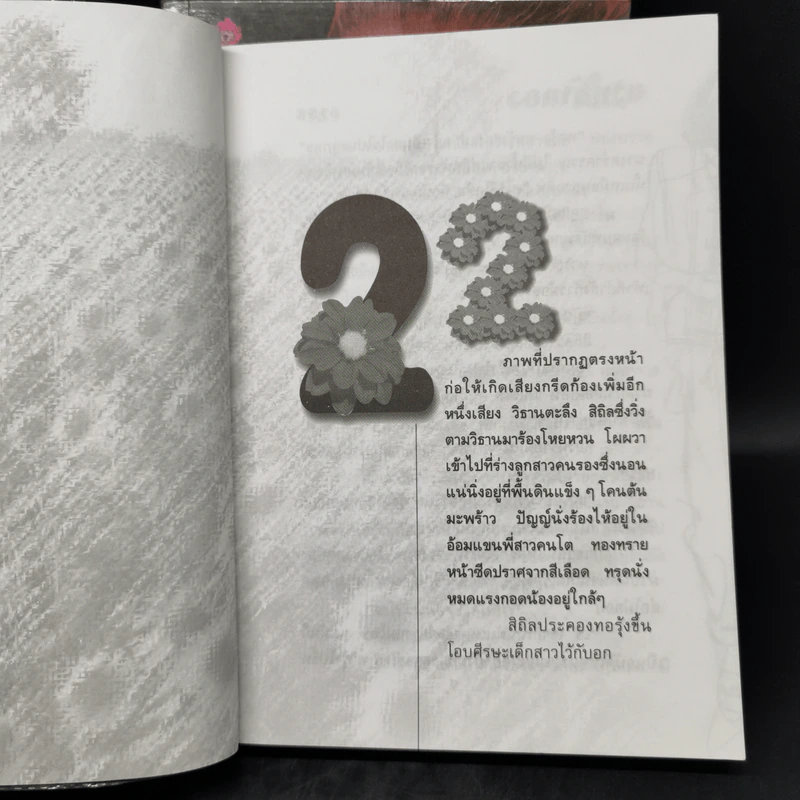 22
ภาพที่ปรากฏตรงหน้า
ก่อให้เกิดเสียงกรีดก้องเพิ่มอีก
หนึ่งเสียง วิธานตะลึง สิถิลซึ่งวิ่ง
ตามวิธานมาร้องโหยหวน โผผวา
เข้าไปที่ร่างลูกสาวคนรองซึ่งนอน
แน่นิ่งอยู่ที่พื้นดินแข็ง ๆ โคนต้น
มะพร้าว ปัญญ์นั่งร้องไห้อยู่ใน
อ้อมแขนพี่สาวคนโต ทองทราย
หน้าซีดปราศจากสีเลือด ทรุดนั่ง
หมดแรงกอดน้องอยู่ใกล้ๆ
สิถิลประคองทอรุ้งขึ้น
โอบศีรษะเด็กสาวไว้กับอก